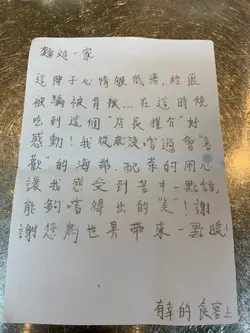 麵処一家
這陣子心情很低落,經歷
被騙被背叛...在這時候
吃到這個"店長推介"好
感動!我從來沒嚐過會"喜
歡"的海帶,配菜的用心
讓我感受到苦中一點
能夠嚐得出的"笑"!謝
謝您為世界帶來一點暖!
有幸的食客上